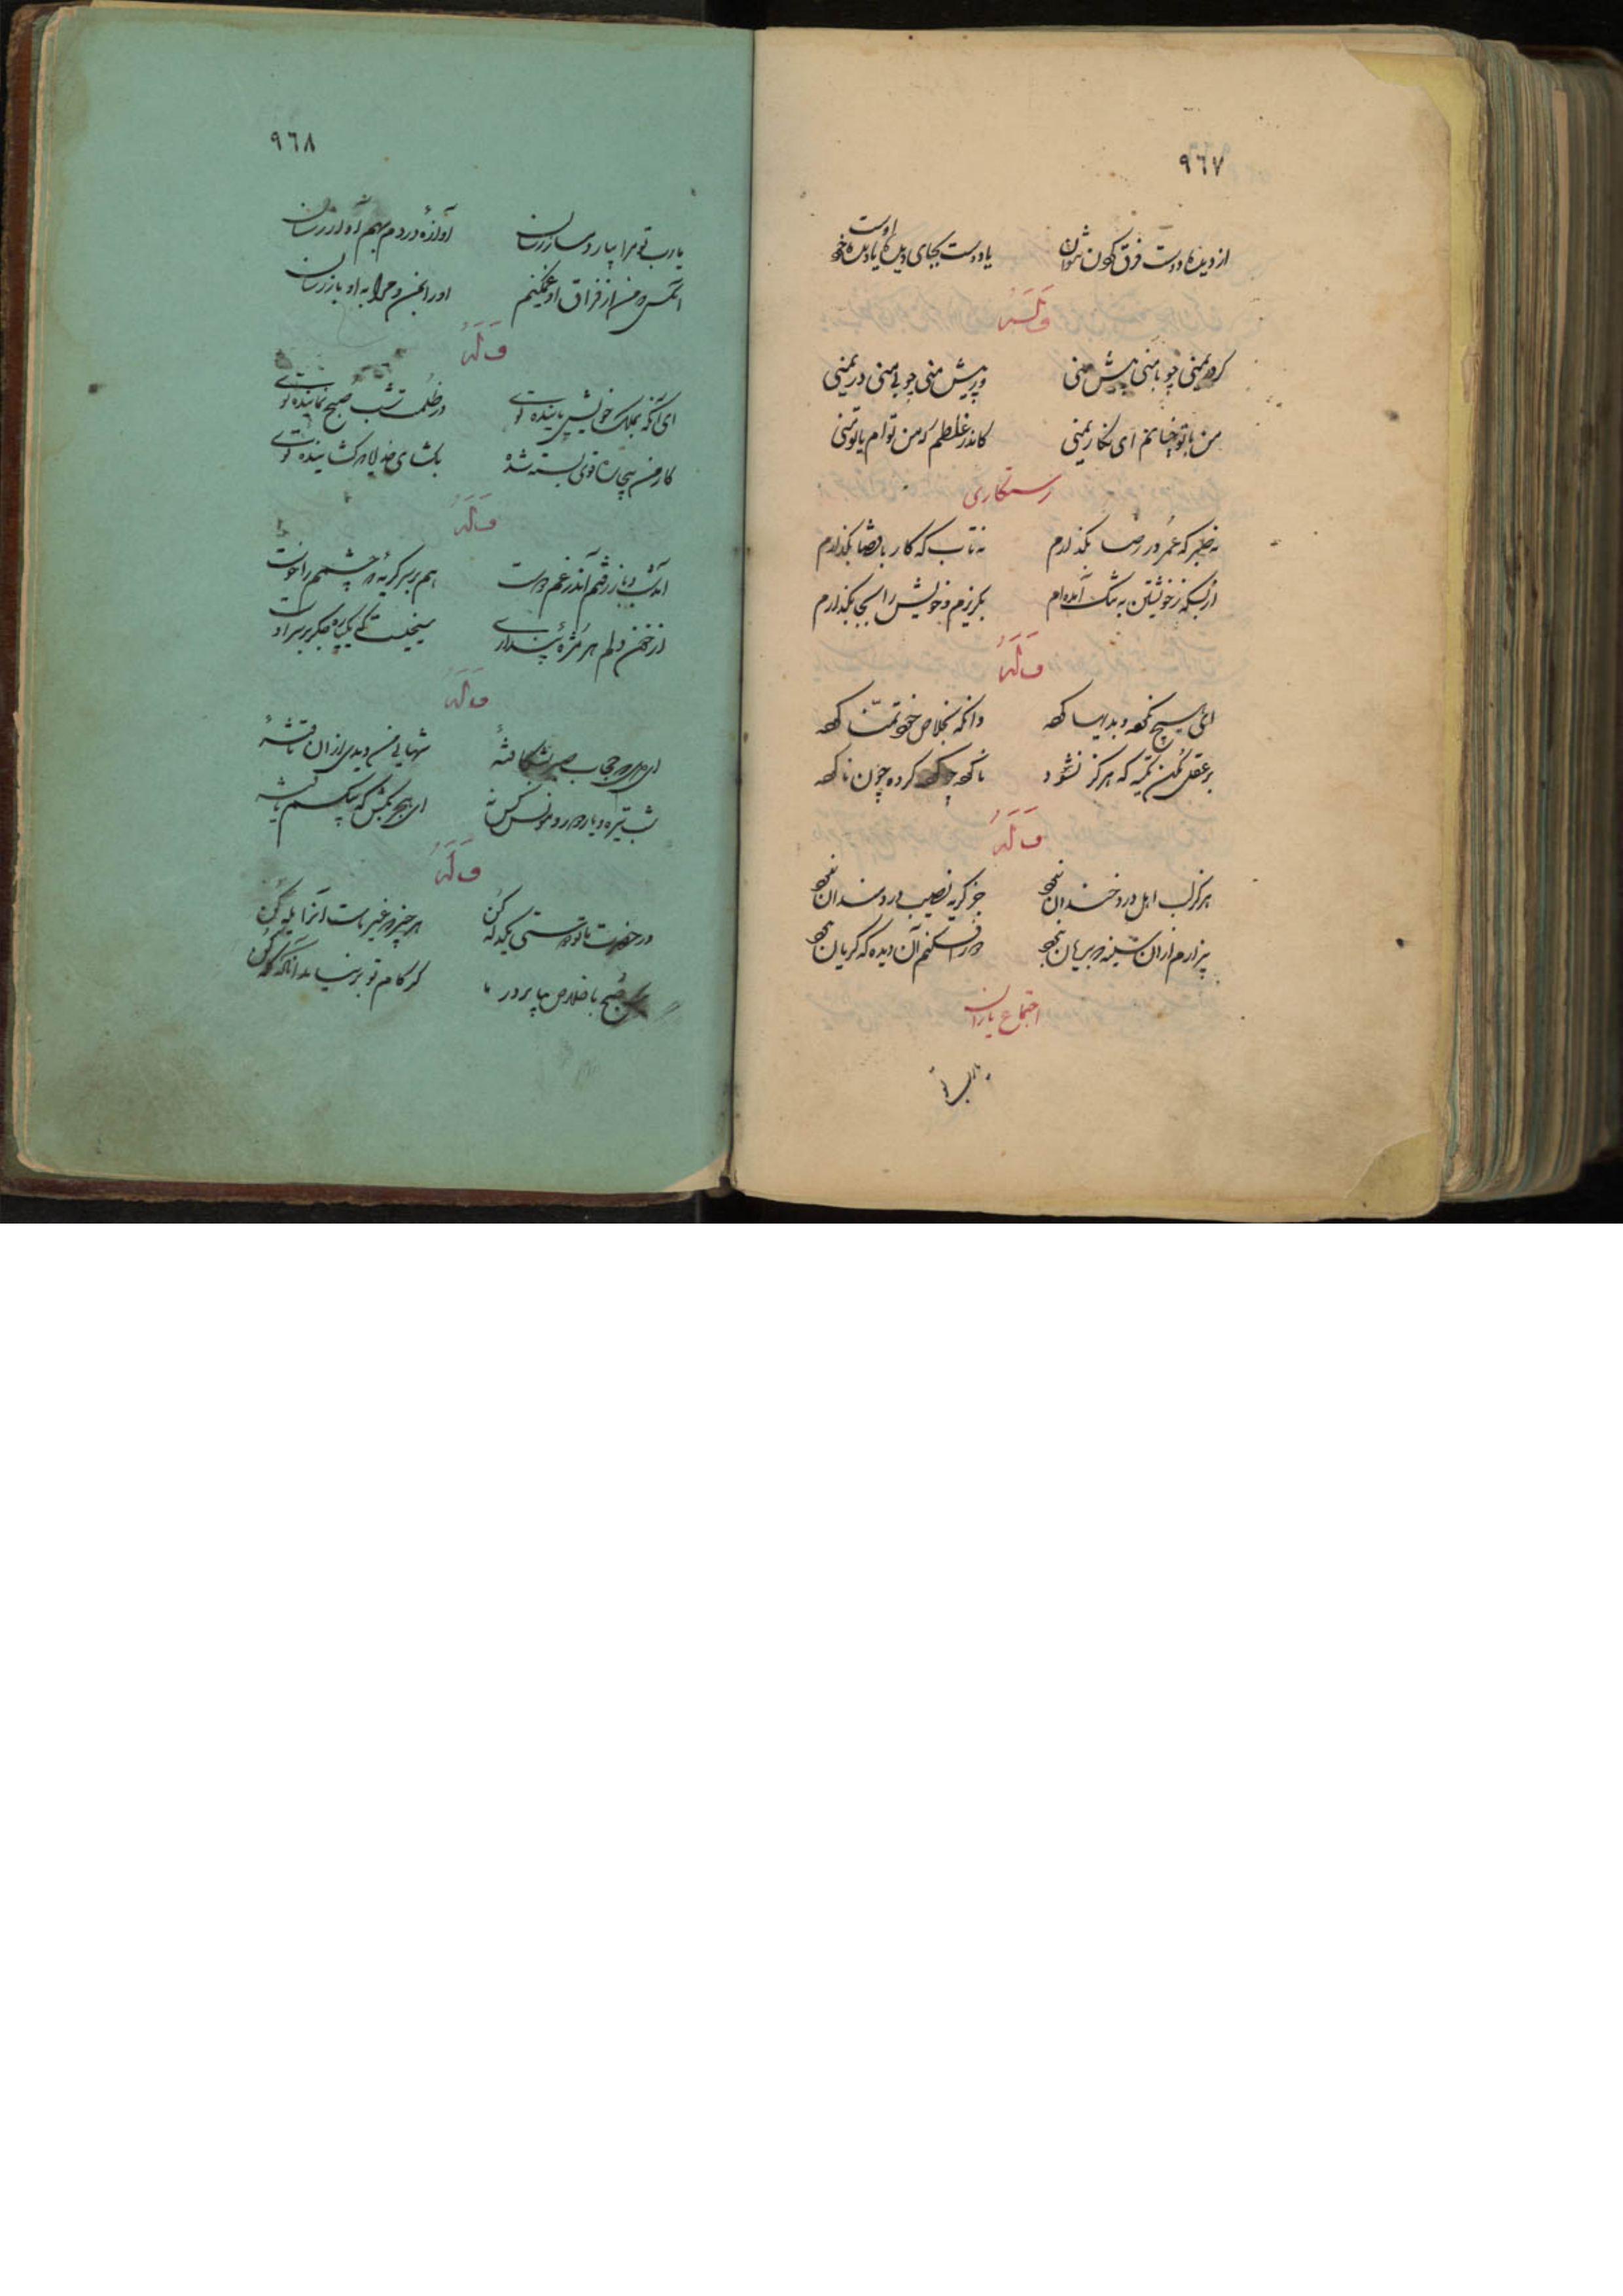 ٩٦٧
از دیده و دوست فرق کردن نتوان یا دوست بجای دیده یا دیده خود اوست
وله
گر در یمنی چو با منی پیش منی ور پیش منی چو بی منی در یمنی
من با تو چنانم ای نگار یمنی کاندر غلطم که من توام یا تو منی
رستگاری
نه صبر که عمر در رضا بگذارم نه تاب که کار با قضا بگذارم
از بسکه ز خویشتن به تنگ آمده‌ام بگریزم و خویش را بجا بگذارم
وله
ای هیچ نکرده و بدیها کرده وانگه بخلاص خود تمنا کرده
بر عفو مکن تکیه که هرگز نشود ناکرده چو کرده کرده چون ناکرده
وله
هرگز لب اهل درد خندان نبود جز گریه نصیب دردمندان نبود
بیزارم از آن سینه که بریان نبود آن دیده که گریان نبود
اجتماع یاران
یا رب تو
٩٦٨
یا رب تو مرا بیار دمساز رسان آوازه دردم بهم آواز رسان
آنکس که من از فراق او غمگینم او را بمن و مرا به او باز رسان
وله
ای آنکه بملک خویش پاینده توئی در ظلمت شب صبح نماینده توئی
کار من بیچاره قوی بسته شده بگشای خدایا که گشاینده توئی
وله
هم بر سر گریه که چشمم را خوست
از خون دلم هر مژه پنداری سیخیست که پاره جگر بر سر اوست
وله
شب تیره و یار دور و مونس کس نه ای هجر بکش که بیکسم یافته
وله
در حضرت ما دوستی یکدله کن هر چیز که غیر ماست آنرا یله کن
یک صبح با خلاص بیا بر در ما گر کام تو بر نیاید آنگه گله کن